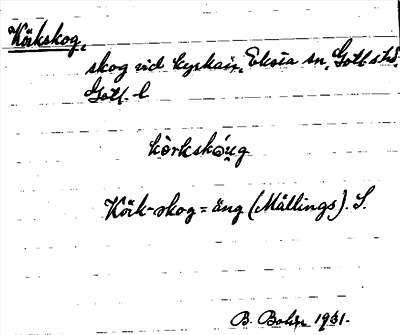 Körkskog,
skog vid kyrkan, Eksta sn, Gotl. s hd.
Gotl. l
kòrkskóug
Körk-skog = äng (Mällings). S.
B. Bohm 1931.